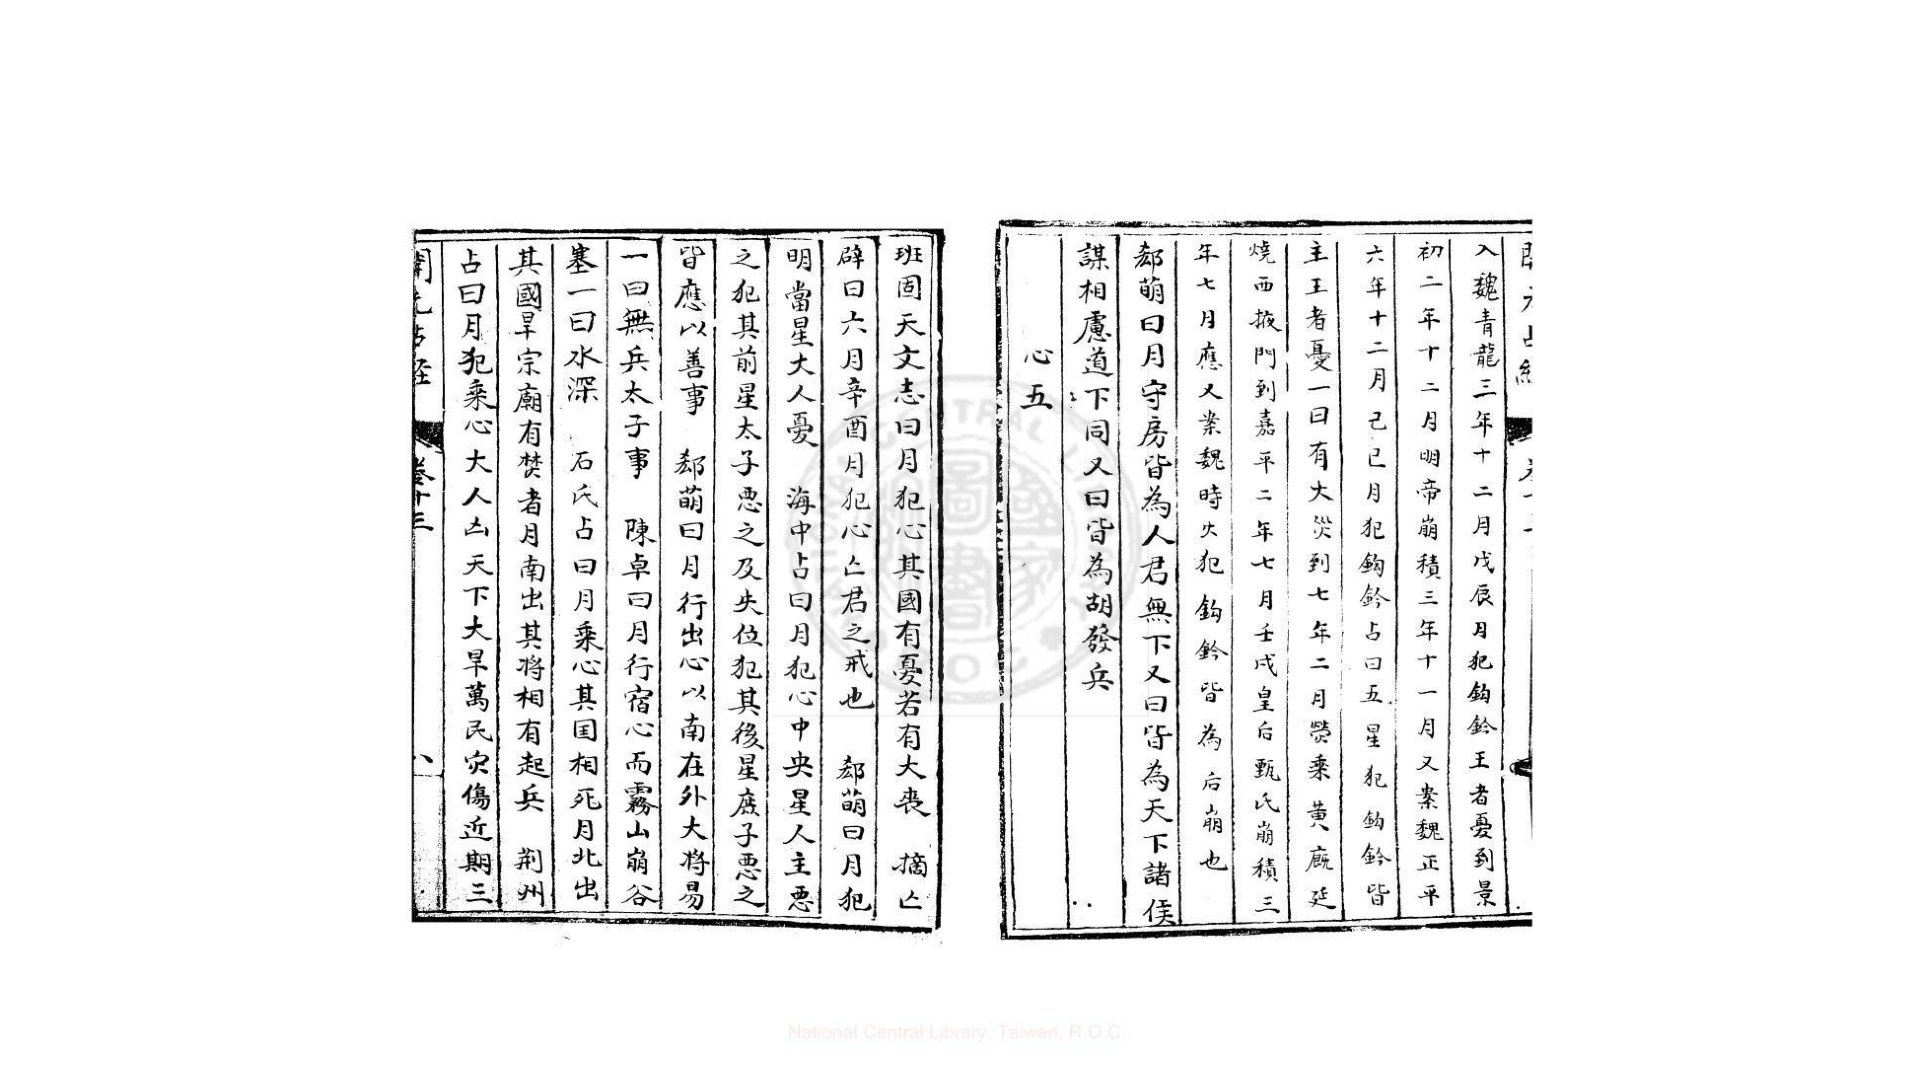 入魏青龍三年十二月戊辰月犯鈎鈐王者憂到景
初二年十二月明帝崩積三年十一月又案魏正平
六年十二月己巳月犯鈎鈐占曰五星犯鈎鈐皆
主王者憂一曰有大災到七年二月熒乗黄廐延
燒西掖門到嘉平二年七月壬戌皇后甄氏崩積三
年七月應又案魏時火犯鈎鈐皆為后崩也
郄萌曰月守房皆為人君無下又曰皆為天下諸侯
謀相慮道下同又曰皆為胡發兵
心五
班固天文志曰月犯心其國有憂若有大喪 摘亡
辟曰六月辛酉月犯心亡君之戒也 郄萌曰月犯
明當星大人憂 海中占曰月犯心中央星人主惡
之犯其前星太子惡之及失位犯其後星庶子惡之
皆應以善事 郄萌曰月行出心以南在外大將易
一曰無兵太子事 陳卓曰月行宿心而霧山崩谷
塞一曰水深 石氏占曰月乗心其国相死月北出
其國旱宗廟有焚者月南出其将相有起兵 荆州
占曰月犯乗心大人凶天下大旱萬民灾傷近期三
開元占經 卷十三 八
National Central Library, Taiwan, R.O.C.